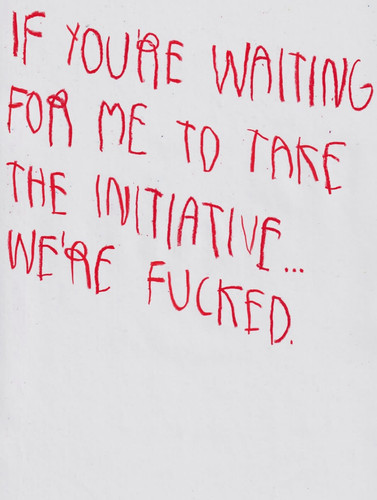 IF YOU'RE WAITING
FOR ME TO TAKE
THE INITIATIVE...
WE'RE FUCKED.